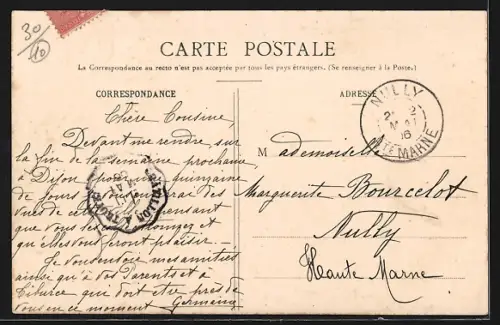 30/10
CARTE POSTALE
La Correspondance au recto n'est pas acceptée par tous les pays étrangers. (Se renseigner à la Poste.)
CORRESPONDANCE
ADRESSE
NULLY
2
MAI
HTE MARNE
Chère Cousine,
Devant me rendre sur
la fin de la semaine prochaine
à Dijon pour une quinzaine
de jours
vues de cette
que vous les
qu'elles vous feront plaisir.
Je vous envoie mes amitiés
ainsi qu'à vos Parents et à
qui doit être près de
vous en ce moment Germaine
Mademoiselle
Marguerite Bourcelot
Nully
Haute Marne